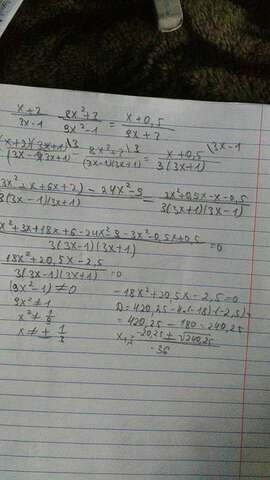 x+2/3x-1 - 8x²+3/9x²-1 = x+0,5/9x+3
(x+2)(3x+1)\3/(3x-1)(3x+1) - 8x²+3\3/(3x-1)(3x+1) = x+0,5\3x-1/3(3x+1)
3x²+x+6x+2) - 24x²-9/3(3x-1)(3x+1) = 3x²+0,5x-x-0,5/3(3x+1)(3x-1)
x²+3x+18x+6-24x²-9-3x²-0,5x+0,5/3(3x-1)(3x+1) = 0
18x²+20,5x-2,5/3(3x-1)(3x+1) = 0
(9x²-1) ≠ 0
9x² ≠ 1
x² ≠ 1/9
x ≠ ± 1/3
-18x²+20,5x-2,5=0
D=420,25-4·(-18)·(-2,5)=
=420,25-180=240,25
x₁,₂ = -20,25±√240,25/-36